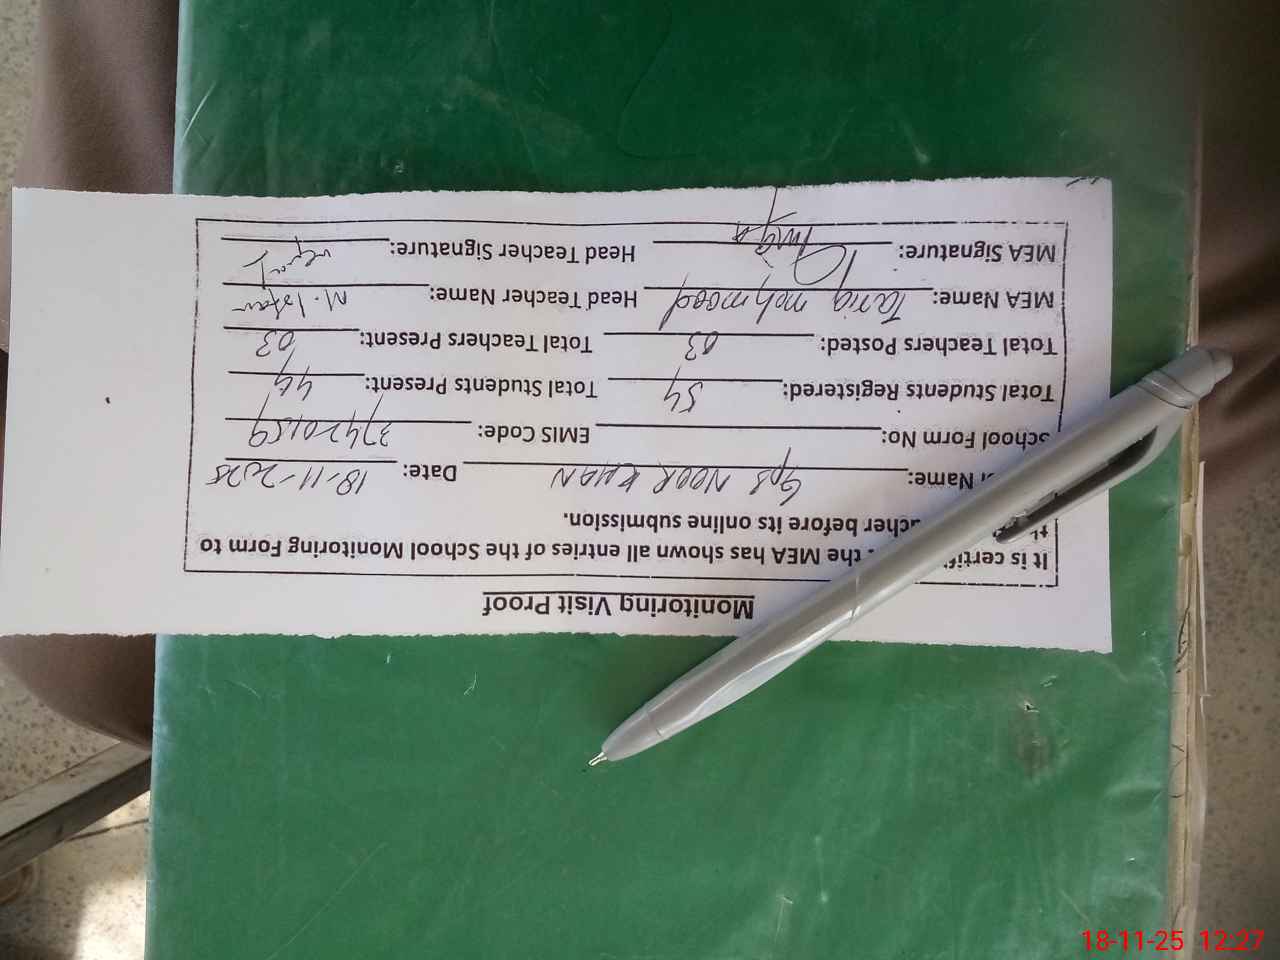 Monitoring Visit Proof
It is certifi the MEA has shown all entries of the School Monitoring Form to
th cher before its online submission.
ol Name: GPS NOOR KHAN Date: 18-11-2025
School Form No: EMIS Code: 37420159
Total Students Registered: 54 Total Students Present: 44
Total Teachers Posted: 03 Total Teachers Present: 03
MEA Name: Tariq mehmood Head Teacher Name: M.
MEA Signature: Head Teacher Signature:
18-11-25 12:27